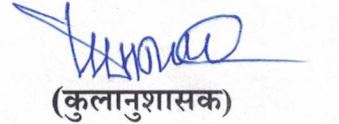 (कुलानुशासक)